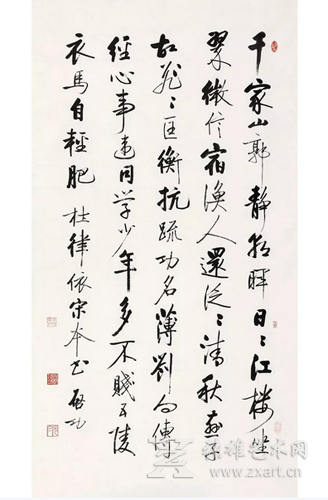 千家山郭靜朝暉日〻江樓坐
翠微信宿漁人還泛〻清秋燕子
故飛〻匡衡抗疏功名薄劉向傳
經心事違同学少年多不賤五陵
衣馬自輕肥 杜律依宋本书 啟功
张雄艺术网
www.zxart.cn